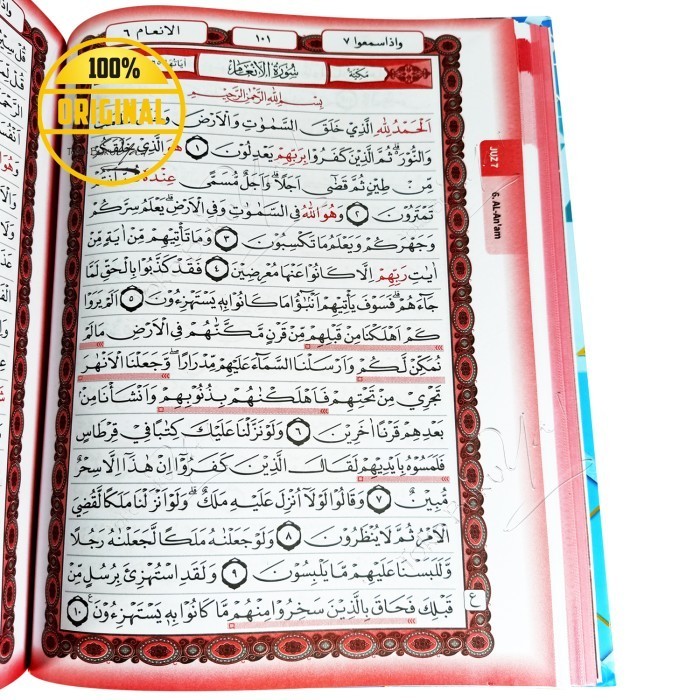 واذاسمعوا ٧ ١٠١ الانعام ٦
مكية سُورَةُ الْأَنْعَامِ
بِسْمِ اللّٰهِ الرَّحْمٰنِ الرَّحِيْمِ
اَلْحَمْدُ لِلّٰهِ الَّذِيْ خَلَقَ السَّمٰوٰتِ وَالْاَرْضَ
وَالنُّوْرَ ۗ ثُمَّ الَّذِيْنَ كَفَرُوْا بِرَبِّهِمْ يَعْدِلُوْنَ ١ هُوَ الَّذِيْ خَلَقَكُمْ
مِّنْ طِيْنٍ ثُمَّ قَضٰٓى اَجَلًا ۗ وَاَجَلٌ مُّسَمًّى عِنْدَهٗ ثُمَّ اَنْتُمْ
تَمْتَرُوْنَ ٢ وَهُوَ اللّٰهُ فِى السَّمٰوٰتِ وَفِى الْاَرْضِ ۗ يَعْلَمُ سِرَّكُمْ
وَجَهْرَكُمْ وَيَعْلَمُ مَا تَكْسِبُوْنَ ٣ وَمَا تَأْتِيْهِمْ مِّنْ اٰيَةٍ مِّنْ
اٰيٰتِ رَبِّهِمْ اِلَّا كَانُوْا عَنْهَا مُعْرِضِيْنَ ٤ فَقَدْ كَذَّبُوْا بِالْحَقِّ لَمَّا
جَاۤءَهُمْ ۗ فَسَوْفَ يَأْتِيْهِمْ اَنْۢبٰۤؤُا مَا كَانُوْا بِهٖ يَسْتَهْزِءُوْنَ ٥ اَلَمْ يَرَوْا
كَمْ اَهْلَكْنَا مِنْ قَبْلِهِمْ مِّنْ قَرْنٍ مَّكَّنّٰهُمْ فِى الْاَرْضِ مَا لَمْ
نُمَكِّنْ لَّكُمْ وَاَرْسَلْنَا السَّمَاۤءَ عَلَيْهِمْ مِّدْرَارًا ۖ وَّجَعَلْنَا الْاَنْهٰرَ
تَجْرِيْ مِنْ تَحْتِهِمْ فَاَهْلَكْنٰهُمْ بِذُنُوْبِهِمْ وَاَنْشَأْنَا مِنْۢ
بَعْدِهِمْ قَرْنًا اٰخَرِيْنَ ٦ وَلَوْ نَزَّلْنَا عَلَيْكَ كِتٰبًا فِيْ قِرْطَاسٍ
فَلَمَسُوْهُ بِاَيْدِيْهِمْ لَقَالَ الَّذِيْنَ كَفَرُوْٓا اِنْ هٰذَآ اِلَّا سِحْرٌ
مُّبِيْنٌ ٧ وَقَالُوْا لَوْلَآ اُنْزِلَ عَلَيْهِ مَلَكٌ ۗ وَلَوْ اَنْزَلْنَا مَلَكًا لَّقُضِيَ
الْاَمْرُ ثُمَّ لَا يُنْظَرُوْنَ ٨ وَلَوْ جَعَلْنٰهُ مَلَكًا لَّجَعَلْنٰهُ رَجُلًا
وَّلَلَبَسْنَا عَلَيْهِمْ مَّا يَلْبِسُوْنَ ٩ وَلَقَدِ اسْتُهْزِئَ بِرُسُلٍ مِّنْ
قَبْلِكَ فَحَاقَ بِالَّذِيْنَ سَخِرُوْا مِنْهُمْ مَّا كَانُوْا بِهٖ يَسْتَهْزِءُوْنَ ١٠
ع
JUZ 7
6. AL-An'am
100%
ORIGINAL